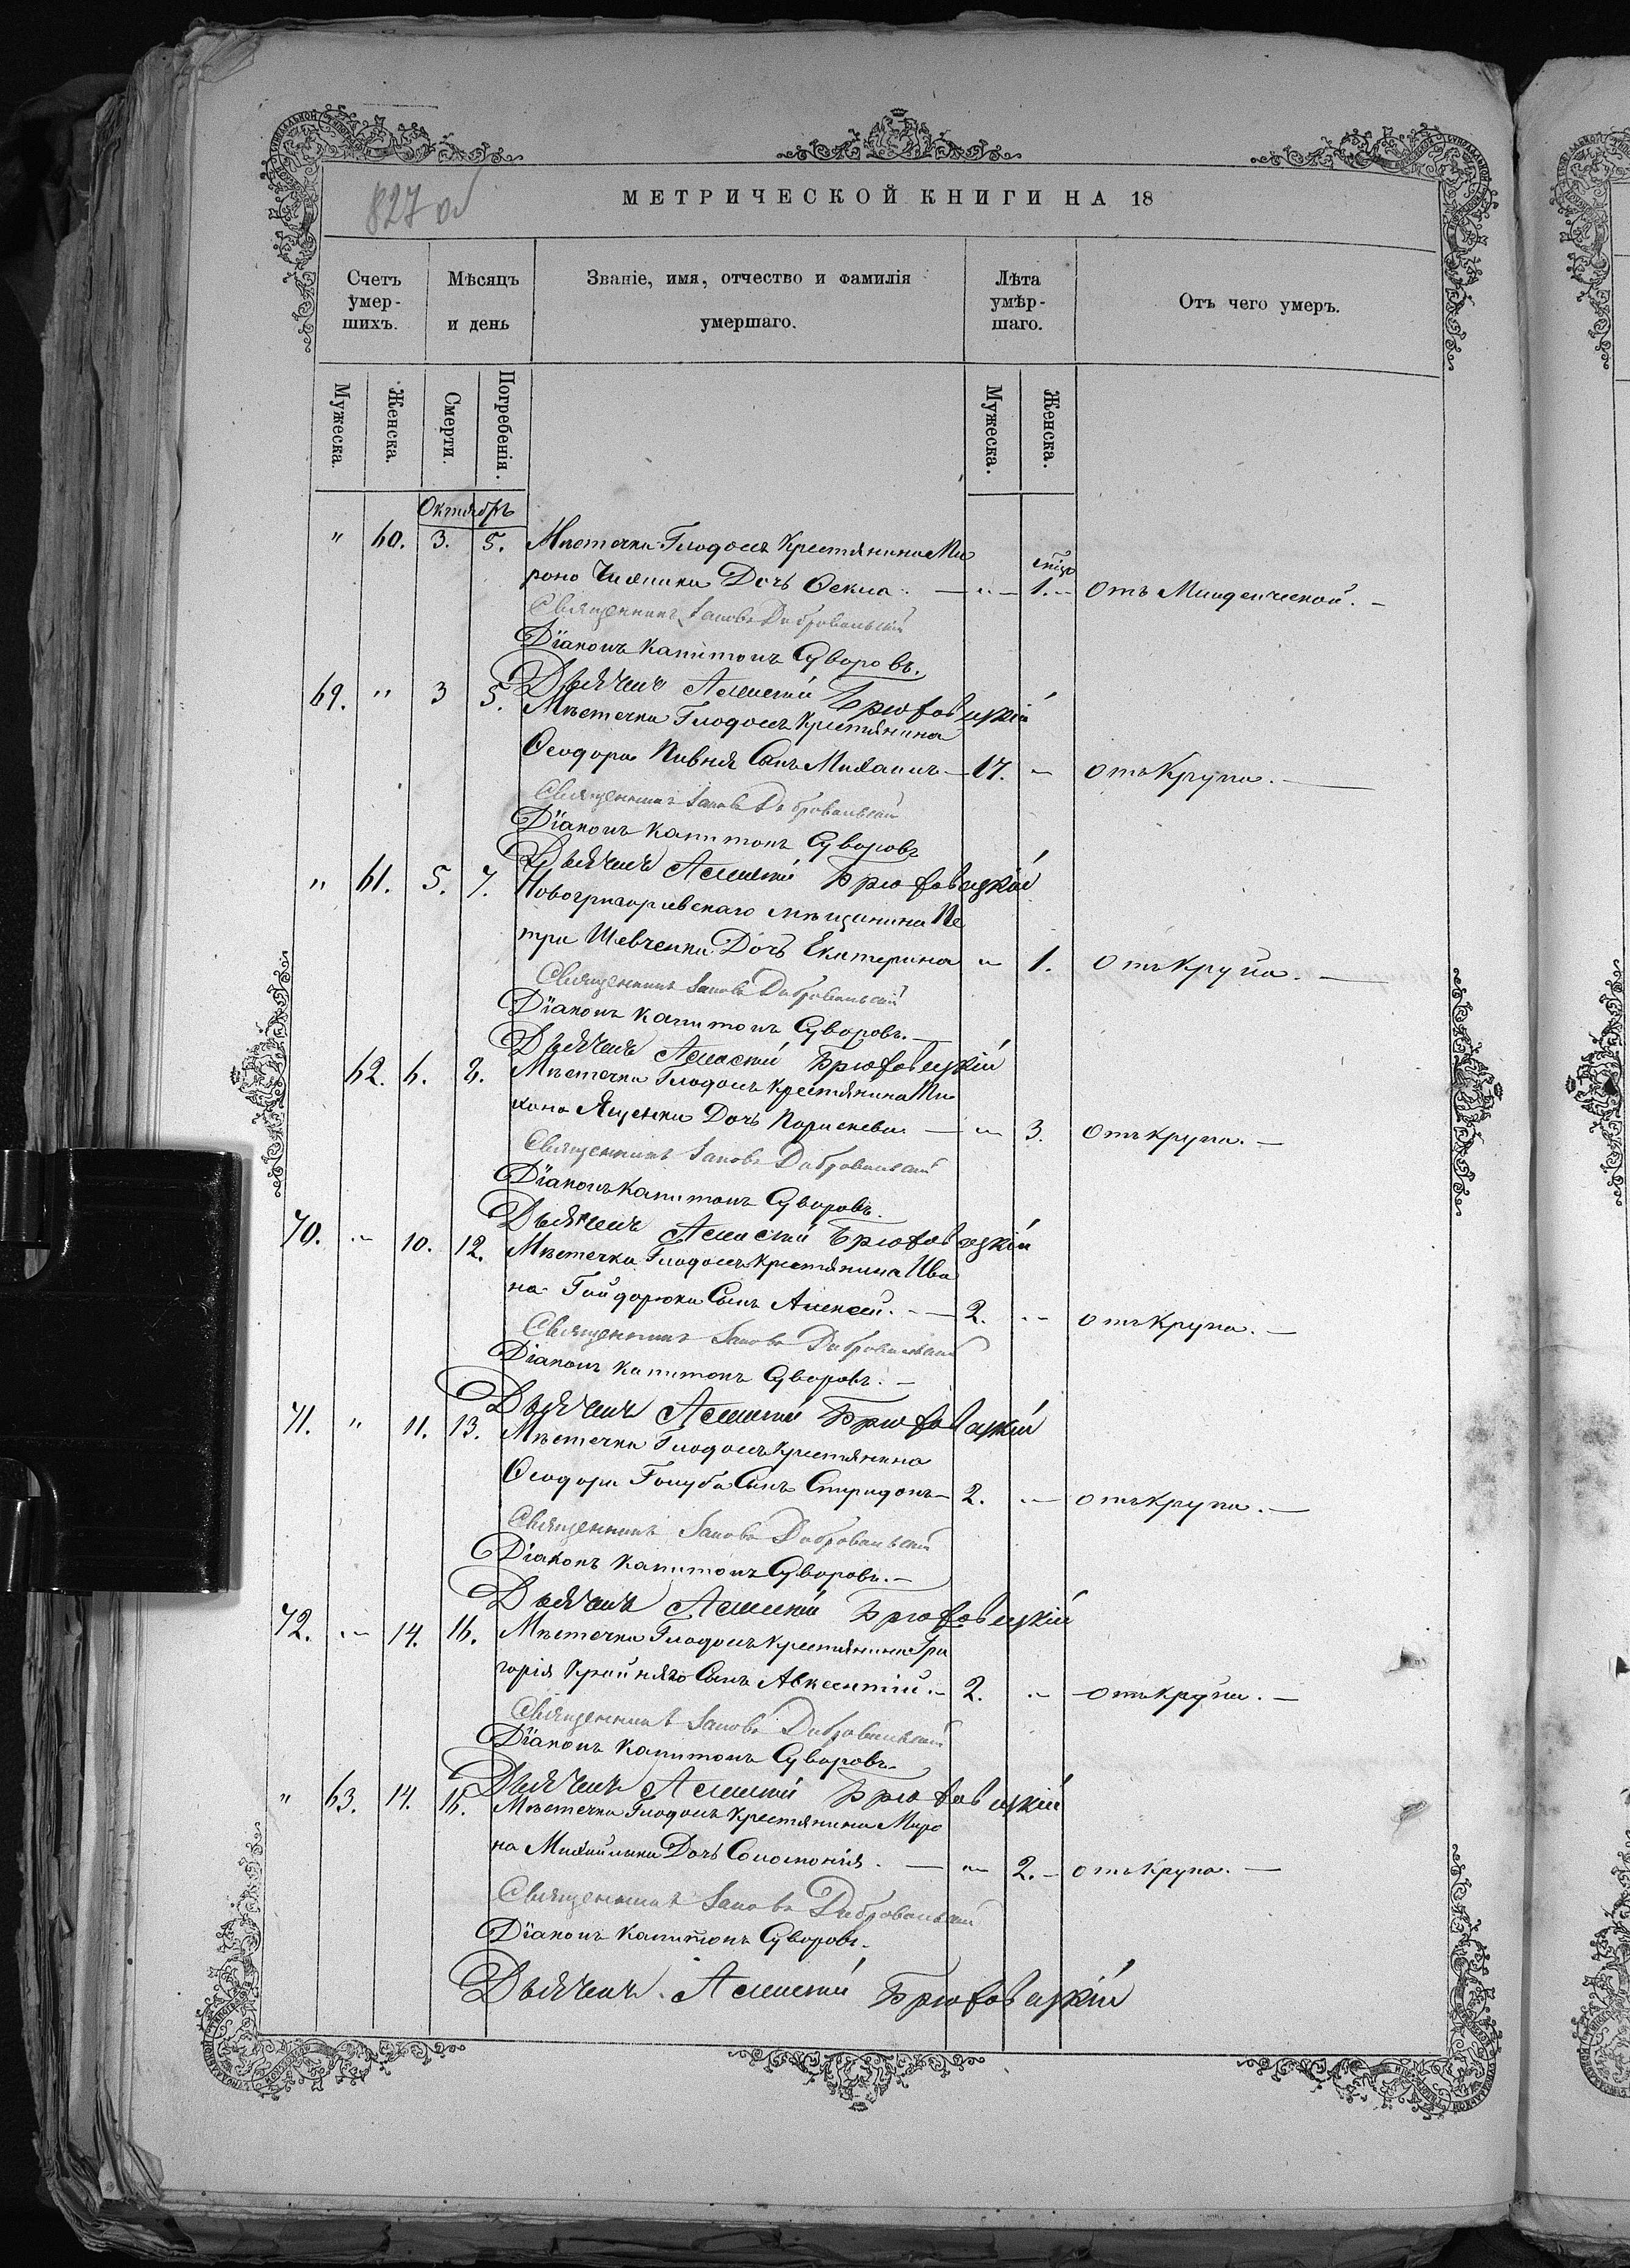 827 об
МЕТРИЧЕСКОЙ КНИГИ НА 18
Счетъ умер-шихъ.
Мѣсяцъ и день
Званіе, имя, отчество и фамилія умершаго.
Лѣта умѣр-шаго.
Отъ чего умеръ.
Мужеска.
Женска.
Смерти.
Погребенія.
Мужеска.
Женска.
Октябрь
" 60. 3. 5. Мѣстечка Глодосъ Крестянина Ми
рона Дочь Ѳекла. — " — 1. — Отъ Младенческой. —
Священникъ Іаковъ Добровольскій
Діаконъ Капитонъ Суворовъ.
Дьячекъ Алексій Брюховецкій
69. " 3 5. Мѣстечка Глодосъ Крестянина
Ѳеодора Пивня Сынъ Михаилъ — 17. " Отъ Крупа. —
Священникъ Іаковъ Добровольскій
Діаконъ Капитонъ Суворовъ
Дьячекъ Алексій Брюховецкій
" 61. 5. 7. Новогригорьевскаго мѣщанина Пе
тра Шевченка Дочь Екатерина " 1. Отъ Крупа. —
Священникъ Іаковъ Добровольскій
Діаконъ Капитонъ Суворовъ. —
Дьячекъ Алексій Брюховецкій
62. 6. 8. Мѣстечка Глодосъ Крестянина Ми
Ященка Дочь Параскева — " 3. Отъ крупа. —
Священникъ Іаковъ Добровольскій
Діаконъ Капитонъ Суворовъ.
Дьячекъ Алексій Брюховецкій
70. " 10. 12. Мѣстечка Глодосъ Крестянина Ива
на Гайдорюка Сынъ Алексій. — 2. " Отъ Крупа. —
Священникъ Іаковъ Добровольскій
Діаконъ Капитонъ Суворовъ. —
Дьячекъ Алексій Брюховецкій
71. " 11. 13. Мѣстечка Глодосъ Крестянина
Ѳеодора Голуба Сынъ Спиридонъ — 2. " отъ Крупа. —
Священникъ Іаковъ Добровольскій
Діаконъ Капитонъ Суворовъ. —
Дьячекъ Алексій Брюховецкій
72. " 14. 16. Мѣстечка Глодосъ Крестянина Гри
горія Крайняго Сынъ Авксентій. — 2. " отъ крупа. —
Священникъ Іаковъ Добровольскій
Діаконъ Капитонъ Суворовъ
Дьячекъ Алексій Брюховецкій
" 63. 14. 16. Мѣстечка Глодосъ Крестянина Миро
на Михайлика Дочь Соломонія. — " 2. — отъ Крупа. —
Священникъ Іаковъ Добровольскій
Діаконъ Капитонъ Суворовъ.
Дьячекъ Алексій Брюховецкій